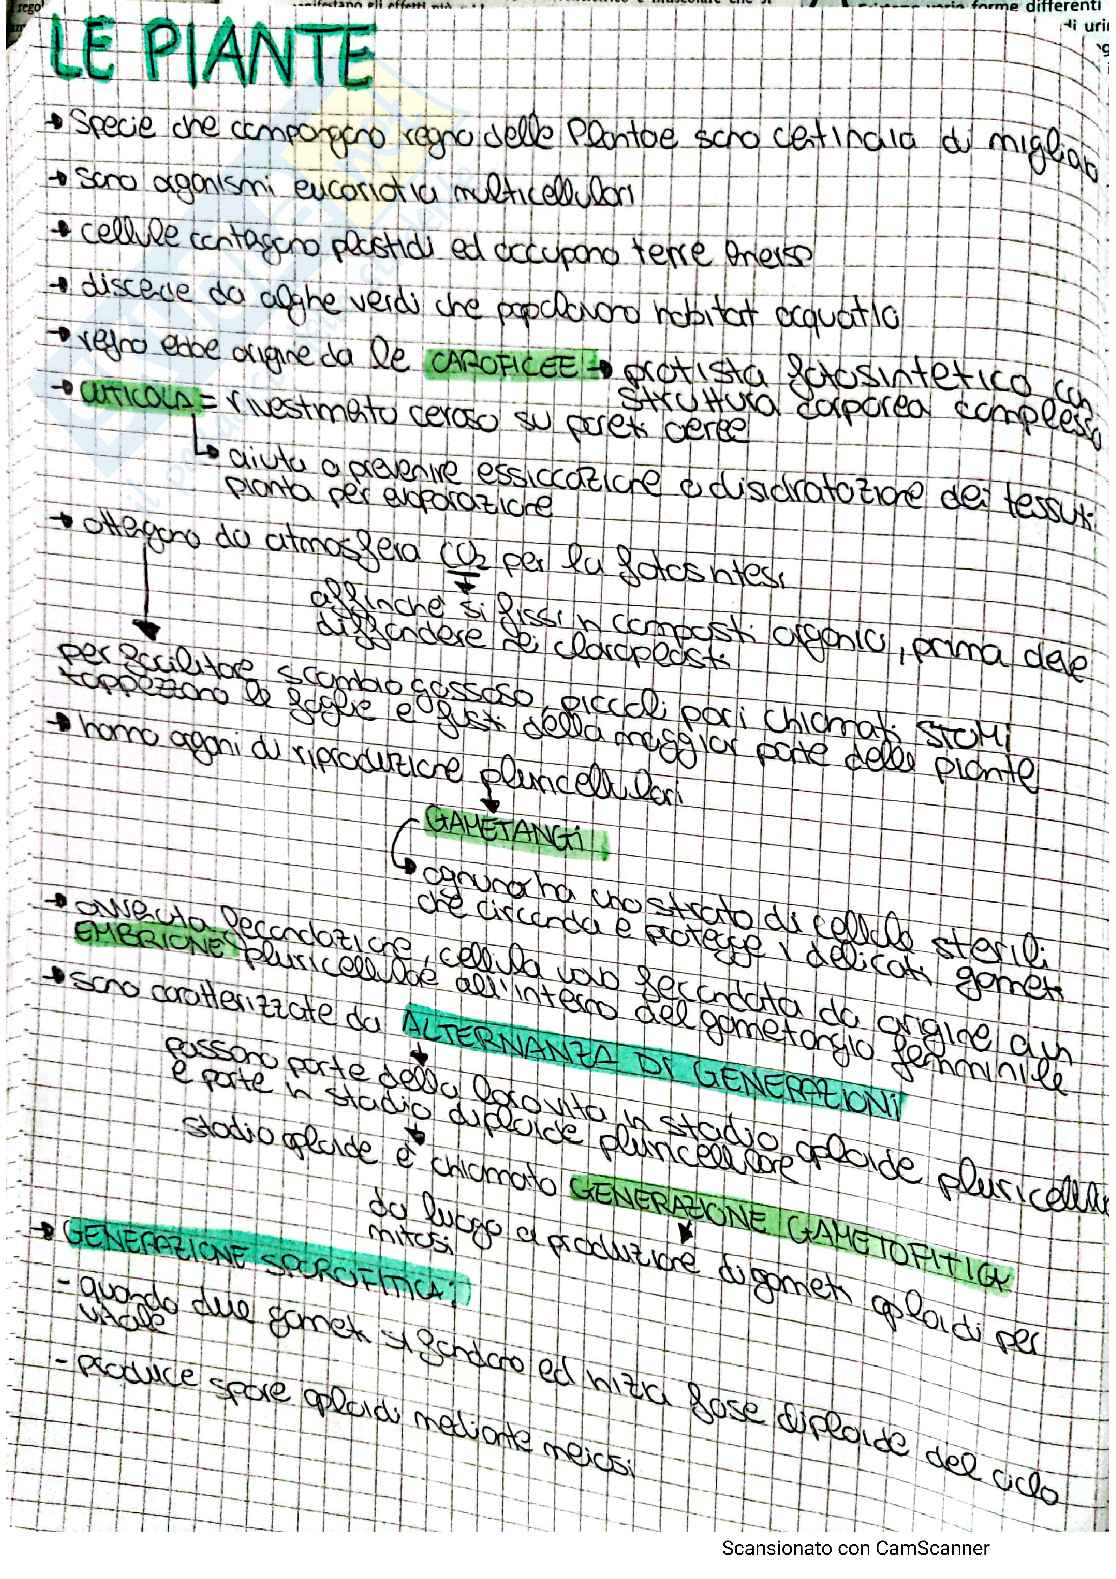 forme differenti
di uri
LE PIANTE
→ Specie che compongono regno delle Plantae sono centinaia di migliaia
→ sono organismi eucarioti multicellulari
→ cellule contengono plastidi ed occupano terre emerse
→ discede da alghe verdi che popolavano habitat acquatici
→ regno ebbe origine da le CAROFICEE → protista fotosintetico con
struttura corporea complessa
→ CUTICOLA = rivestimento ceroso su pareti aeree
↳ aiuta a prevenire essiccazione e disidratazione dei tessuti
pianta per evaporazione
→ ottegono da atmosfera CO2 per la fotosintesi
affinché si fissi in composti organici, prima deve
diffondere nei cloroplasti
per facilitare scambio gassoso, piccoli pori chiamati STOMI
tappezzano le foglie e fusti della maggior parte delle piante
→ hanno organi di riproduzione pluricellulari
GAMETANGI
↳ ognuno ha uno strato di cellule sterili
che circonda e protegge i delicati gameti
→ avvenuta fecondazione, cellula uovo fecondata da origine a un
EMBRIONE pluricellulare all'interno del gametangio femminile
→ sono caratterizzate da ALTERNANZA DI GENERAZIONI
passano parte della loro vita in stadio aploide pluricellulare
e parte in stadio diploide pluricellulare
stadio aploide è chiamato GENERAZIONE GAMETOFITICA
da luogo a produzione di gameti aploidi per
mitosi
→ GENERAZIONE SPOROFITICA:
- quando due gameti si fondono ed inizia fase diploide del ciclo
vitale
- produce spore aploidi mediante meiosi
Scansionato con CamScanner